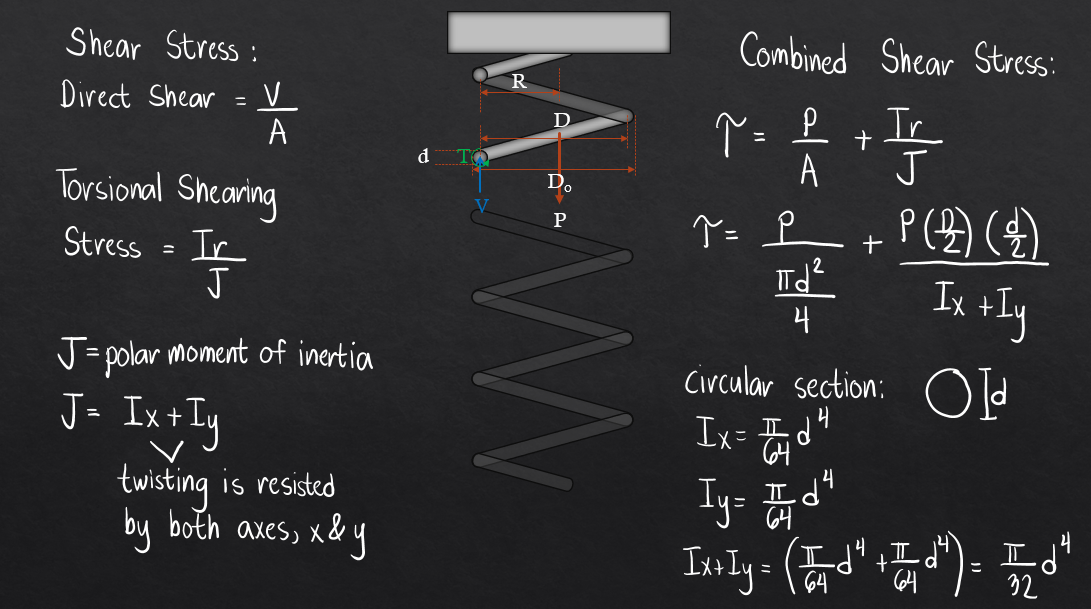 Shear Stress:
Direct Shear = V/A
Torsional Shearing
Stress = Tr/J
J = polar moment of inertia
J = Ix + Iy
twisting is resisted
by both axes, x & y
R
D
d
T
Do
V
P
Combined Shear Stress:
τ = P/A + Tr/J
τ = P/(πd²/4) + P(D/2)(d/2)/(Ix + Iy)
circular section: d
Ix = π/64 d⁴
Iy = π/64 d⁴
Ix+Iy = (π/64 d⁴ + π/64 d⁴) = π/32 d⁴